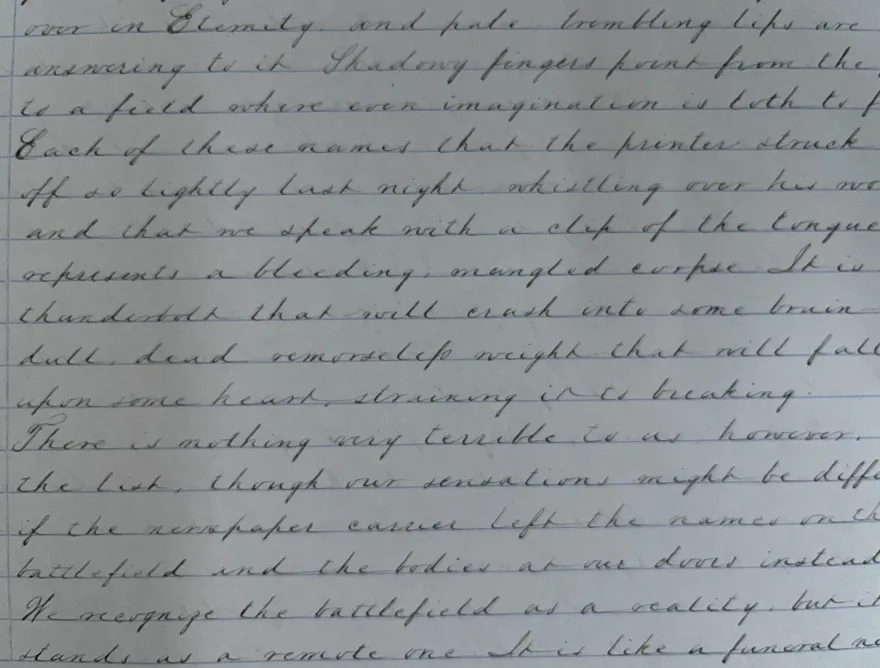 over in Eternity, and pale, trembling lips are
answering to it Shadowy fingers point from the
to a field where even imagination is loth to f
Each of these names that the printer struck
off so lightly last night, whistling over his wo
and that we speak with a clip of the tongue
represents a bleeding, mangled corpse It is
thunderbolt that will crash into some brain
dull, dead remorseless weight that will fall
upon some heart, straining it to breaking.
There is nothing very terrible to us however,
the list, though our sensations might be diffe
if the newspaper carrier left the names on th
battlefield and the bodies at our doors instead
We recognize the battlefield as a reality, but it
stands as a remote one It is like a funeral ne